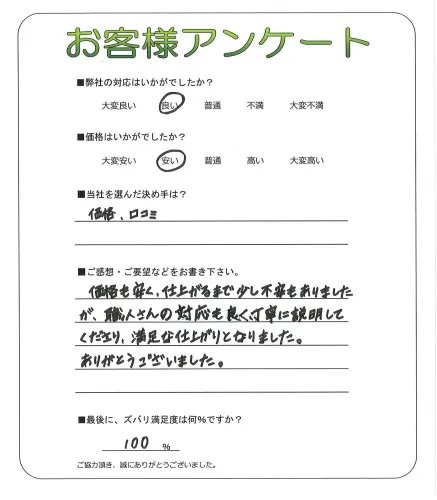 お客様アンケート
■弊社の対応はいかがでしたか？
大変良い 良い 普通 不満 大変不満
■価格はいかがでしたか？
大変安い 安い 普通 高い 大変高い
■当社を選んだ決め手は？
価格、口コミ
■ご感想・ご要望などをお書き下さい。
価格も安く、仕上がるまで少し不安もありました
が、職人さんの対応も良く丁寧に説明して
くださり、満足な仕上がりとなりました。
ありがとうございました。
■最後に、ズバリ満足度は何％ですか？
100 %
ご協力頂き、誠にありがとうございました。